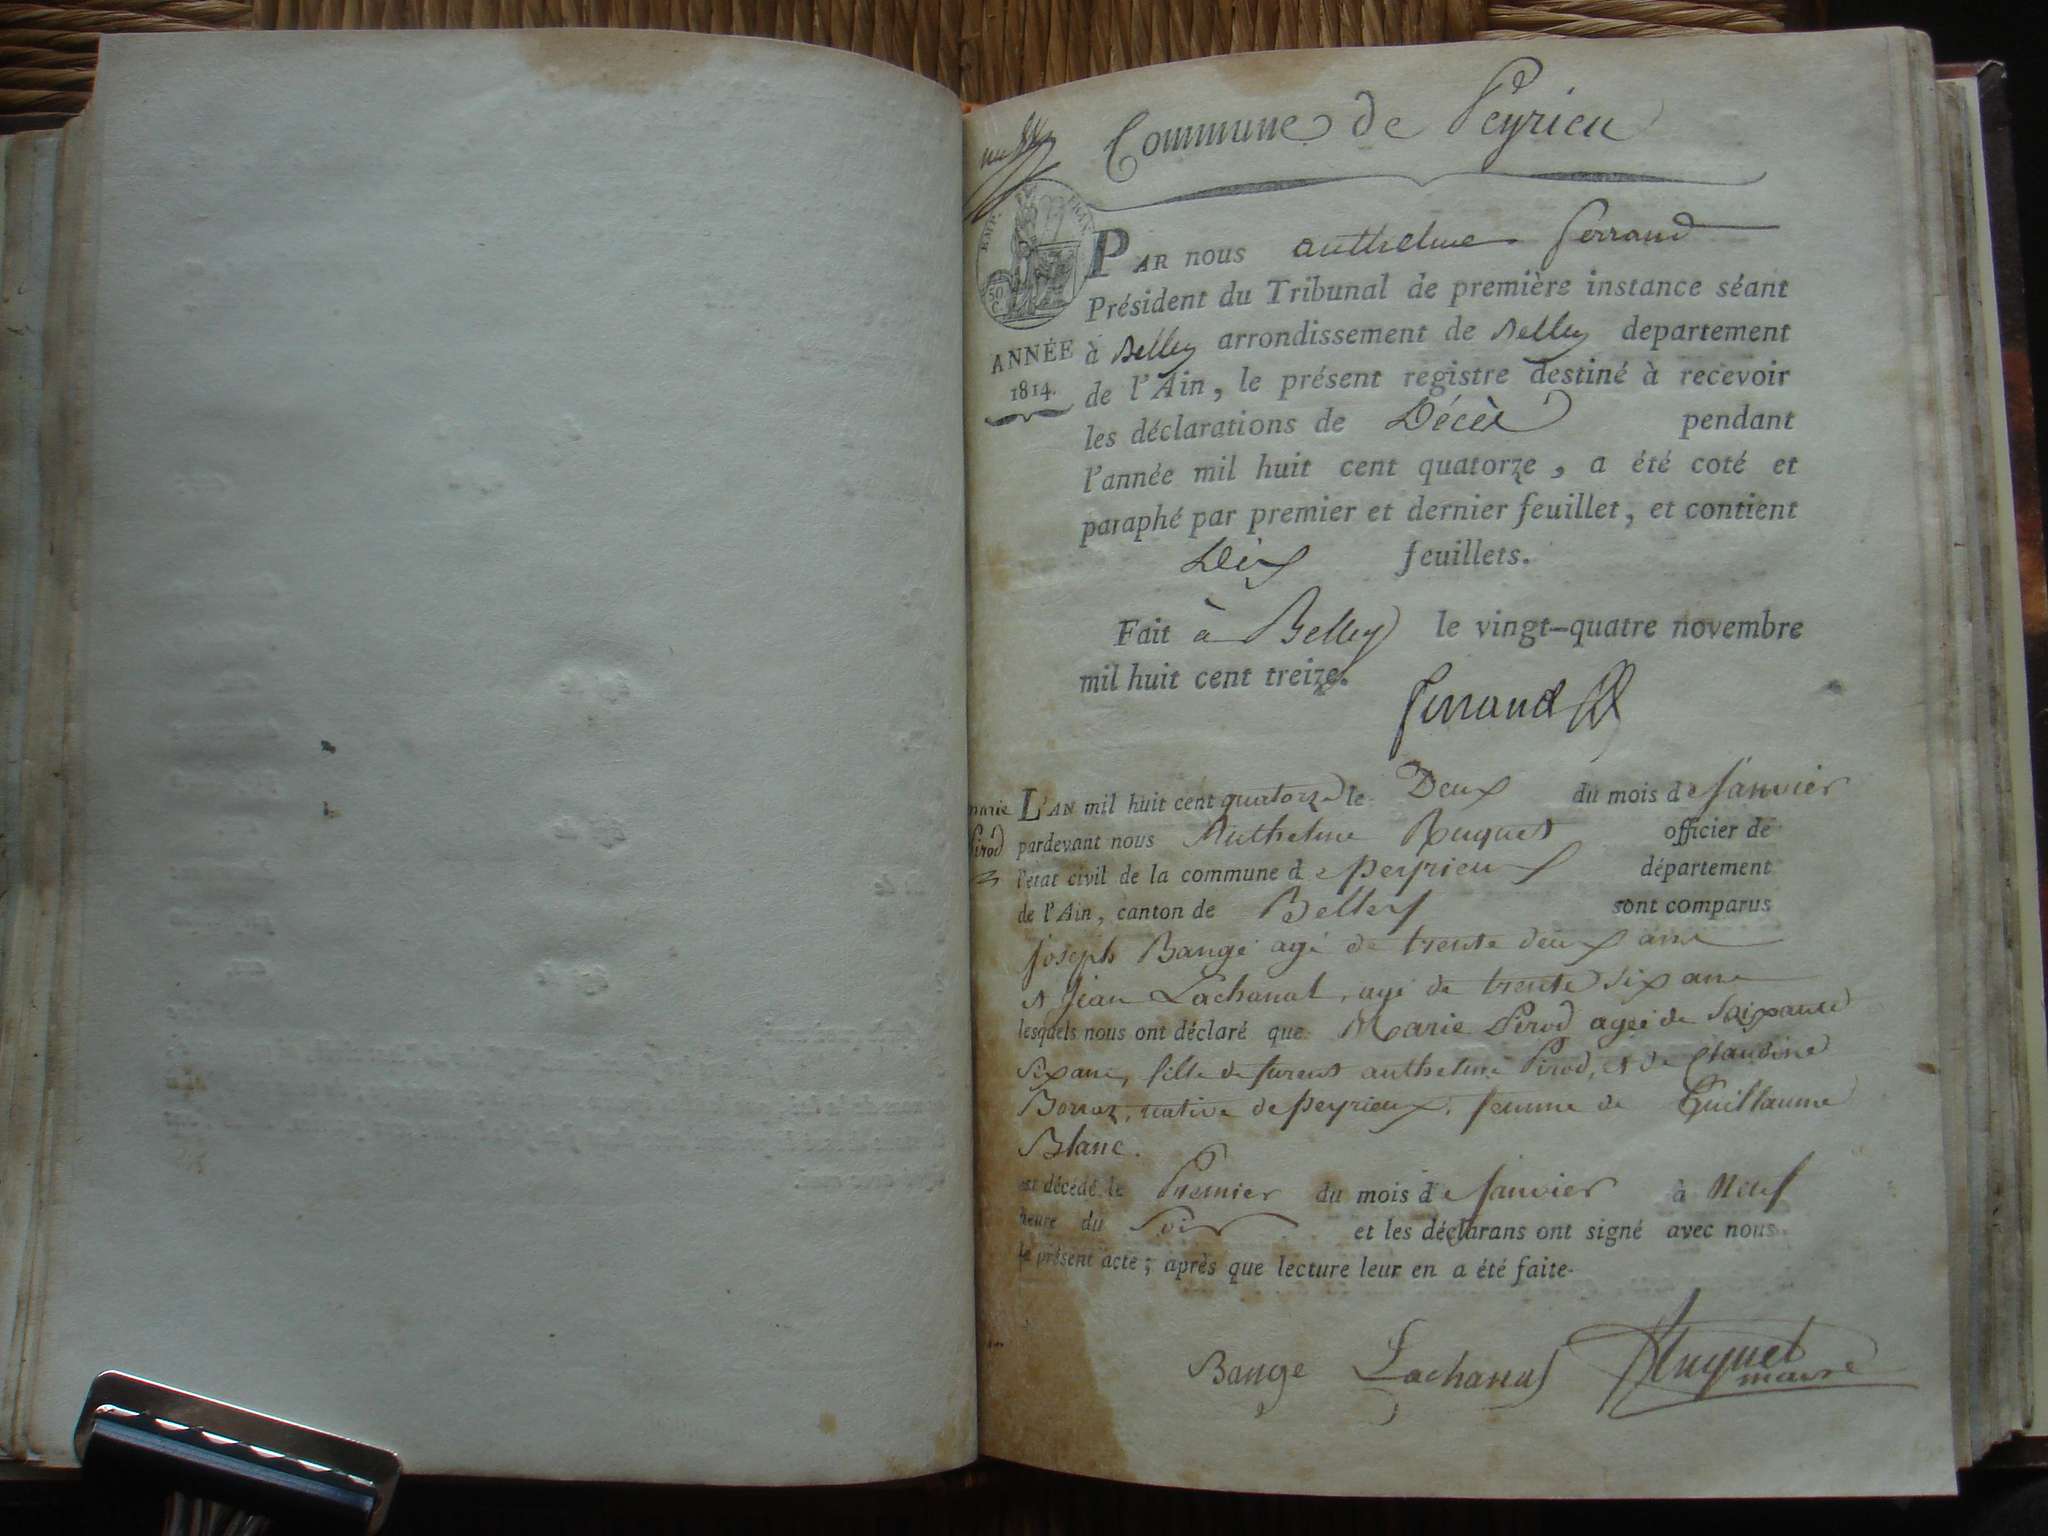 Commune de Peyrieu
EMP. FRAN.
50
C.
ANNÉE
1814.
PAR nous anthelme ferrand
Président du Tribunal de première instance séant
à Belley arrondissement de Belley departement
de l'Ain, le présent registre destiné à recevoir
les déclarations de Décès pendant
l'année mil huit cent quatorze, a été coté et
paraphé par premier et dernier feuillet, et contient
Dix feuillets.
Fait à Belley le vingt-quatre novembre
mil huit cent treize.
ferrand
marie
Pirod
L'AN mil huit cent quatorze le Deux du mois de Janvier
pardevant nous Anthelme Huguet officier de
l'état civil de la commune de peyrieux département
de l'Ain, canton de Belley sont comparus
Joseph Bange agé de trente deux ans
et Jean Lachanal, agé de trente six ans
lesquels nous ont déclaré que Marie Pirod agée de Soixante
Six ans, fille de furent anthelme Pirod, et de Claudine
Borraz, native de peyrieux, femme de Guillaume
Blanc.
est décédé le Premier du mois de Janvier à Neuf
heure du Soir et les déclarans ont signé avec nous
le présent acte; après que lecture leur en a été faite.
Bange Lachanal Huguet
maire